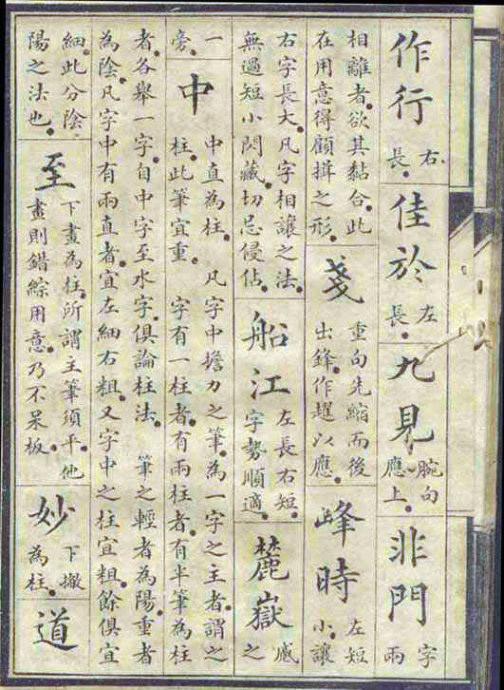 作行
右
長。
佳於
左
長。
九見
腕勾
應上。
非門
字
兩
相離者。欲其黏合。此
在用意得顧揖之形。
戔
重勾先縮而後
出鋒。作趯以應。
峰時
左短
小。讓
右字長大。凡字相讓之法。
無過短小閃藏。切忌侵佔。
船江
左長右短。
字勢順適。
麓嶽
感
之
一
旁。
中
中直為柱。凡字中擔力之筆。為一字之主者。謂之
柱。此筆宜重。字有一柱者。有兩柱者。有半筆為柱
者。各舉一字。自中字至水字。俱論柱法。筆之輕者為陽。重者
為陰。凡字中有兩直者。宜左細右粗。又字中之柱宜粗。餘俱宜
細。此分陰
陽之法也。
至
下畫為柱。所謂主筆須平。他
畫則錯綜用意。乃不呆板。
妙
下撇
為柱。
道